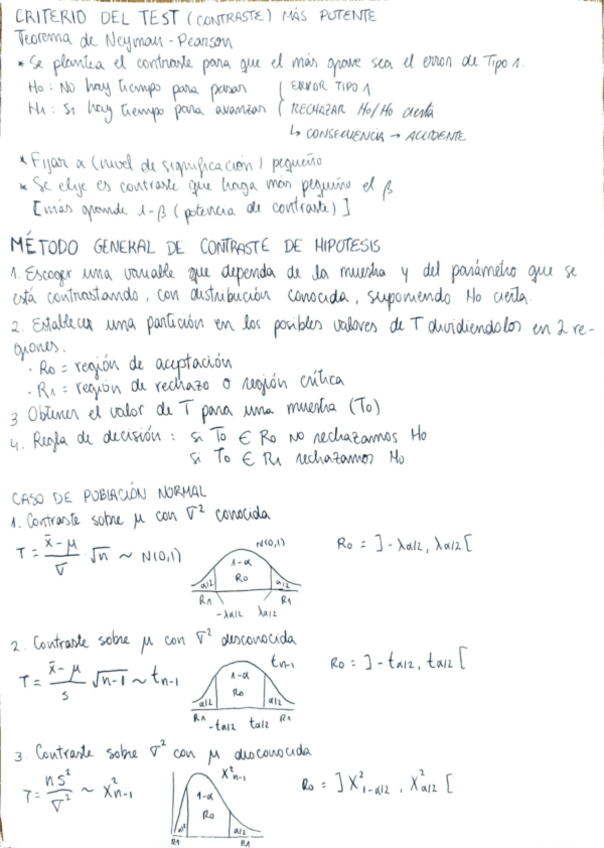 CRITERIO DEL TEST (CONTRASTE) MÁS POTENTE
Teorema de Neyman - Pearson
* Se plantea el contraste para que el más grave sea el error de Tipo 1.
Ho: No hay tiempo para pasar | ERROR TIPO 1
H1: Si hay tiempo para avanzar ( RECHAZAR Ho/Ho cierta
↳ CONSECUENCIA → ACCIDENTE
* Fijar α (nivel de significación) pequeño
* Se elije es contraste que haga más pequeño el β
[más grande 1-β (potencia de contraste)]
MÉTODO GENERAL DE CONTRASTE DE HIPOTESIS
1. Escoger una variable que dependa de la muestra y del parámetro que se
está contrastando, con distribución conocida, suponiendo Ho cierta.
2. Establecer una partición en los posibles valores de T dividiendolos en 2 re-
giones.
· Ro = región de aceptación
· R1 = región de rechazo o región crítica
3 Obtener el valor de T para una muestra (To)
4. Regla de decisión: si To ∈ Ro NO rechazamos Ho
si To ∈ R1 rechazamos Ho
CASO DE POBLACIÓN NORMAL
1. Contraste sobre μ con σ² conocida
T = (x̄ - μ)/σ · √n ~ N(0,1)
N(0,1)
1-α
α/2 Ro α/2
R1 R1
-λα/2 λα/2
Ro = ]-λα/2, λα/2[
2. Contraste sobre μ con σ² desconocida
T = (x̄ - μ)/s √n-1 ~ tn-1
tn-1
1-α
α/2 Ro α/2
R1 -tα/2 tα/2 R1
Ro = ]-tα/2, tα/2[
3 Contraste sobre σ² con μ desconocida
T = ns²/σ² ~ X²n-1
X²n-1
1-α
α/2 Ro α/2
R1 R1
Ro = ]X²1-α/2, X²α/2[